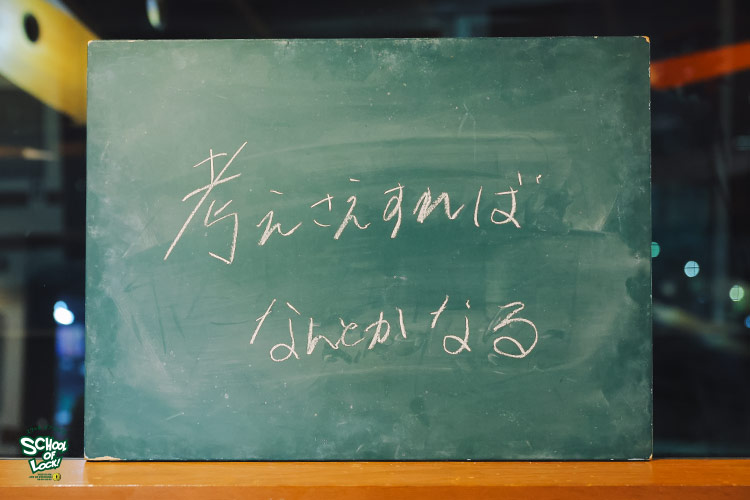 考えさえすれば
なんとかなる
SCHOOL
OF
LOCK!